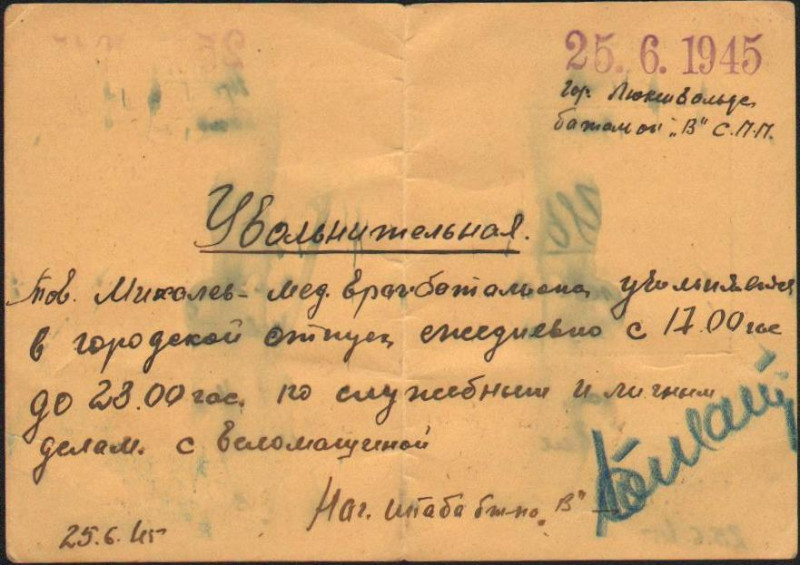 25.6.1945
гор. Люкенвальде,
батальон "В" С.П.П.
Увольнительная.
Тов. Михалев - мед. врач батальона, увольняется
в городской отпуск ежедневно с 17.00 час
до 23.00 час. по служебным и личным
делам. с веломашиной
Нач. штаба б-на "В" –
25.6.45